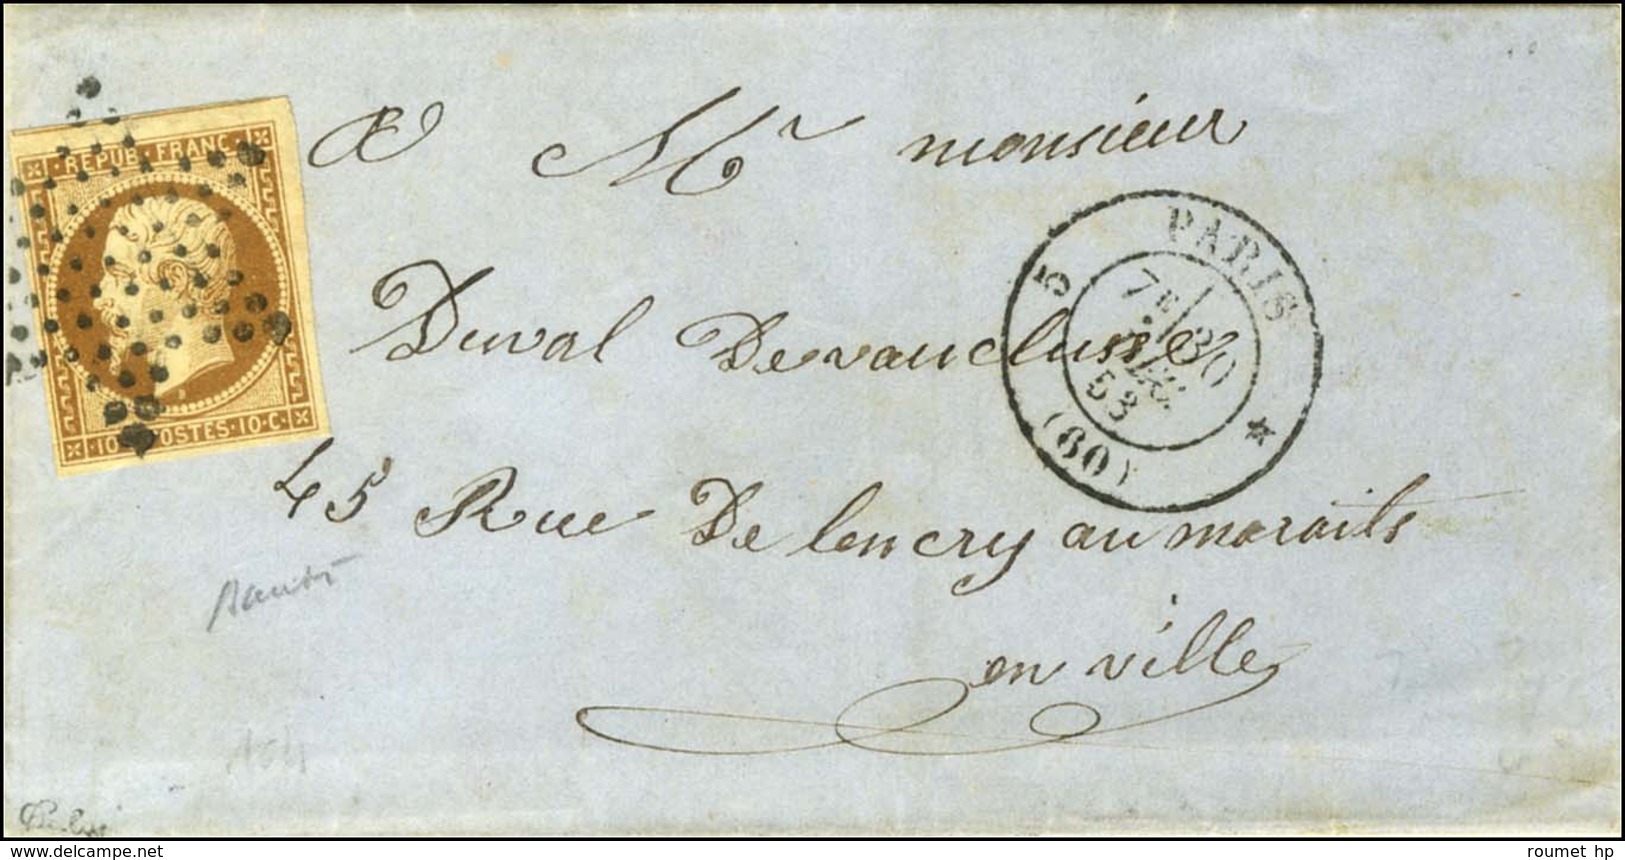 REPUB. FRANC.
10 POSTES 10 C.
A Mr monsieur
PARIS
5
7E 30
DEC.
53
(60)
Duval Devaucluse
45 Rue De lencry au maraits
en ville
104
www.delcampe.net
roumet hp